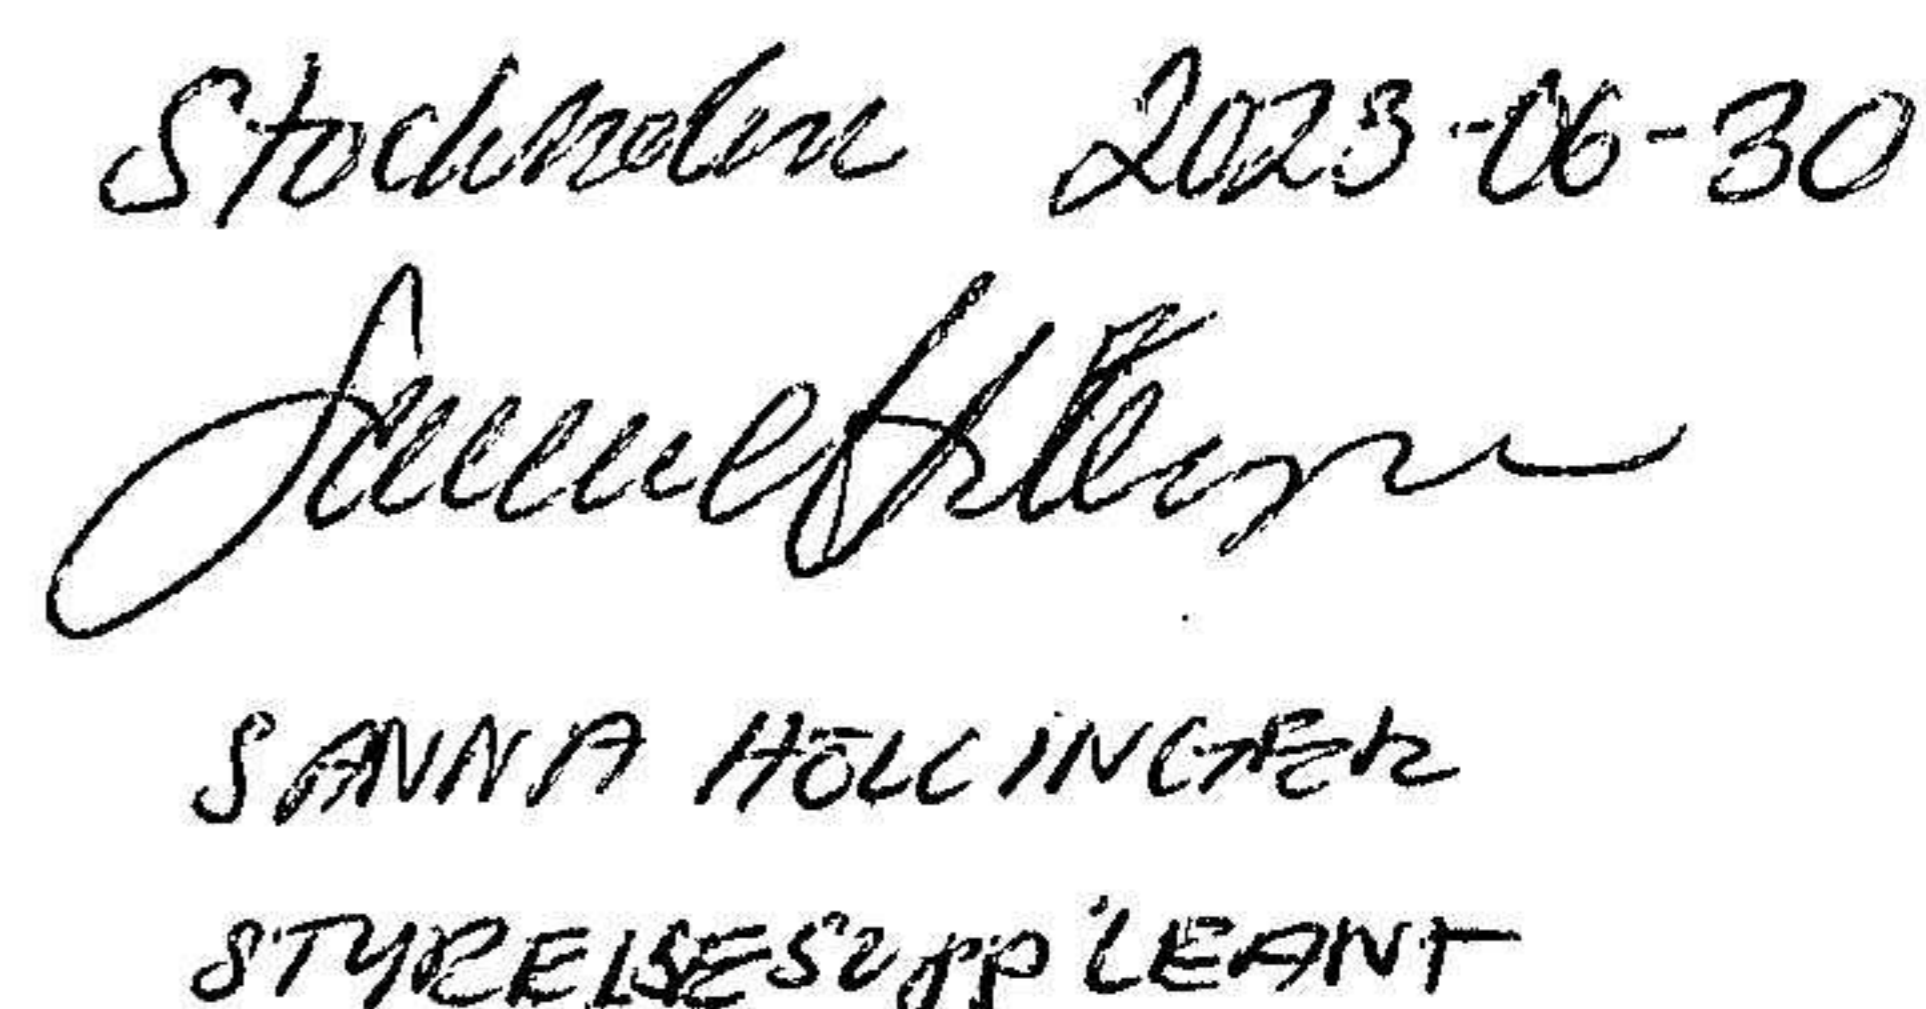 Stockholm 2023-06-30
SANNA HÖLLINGER
STYRELSESUPPLEANT